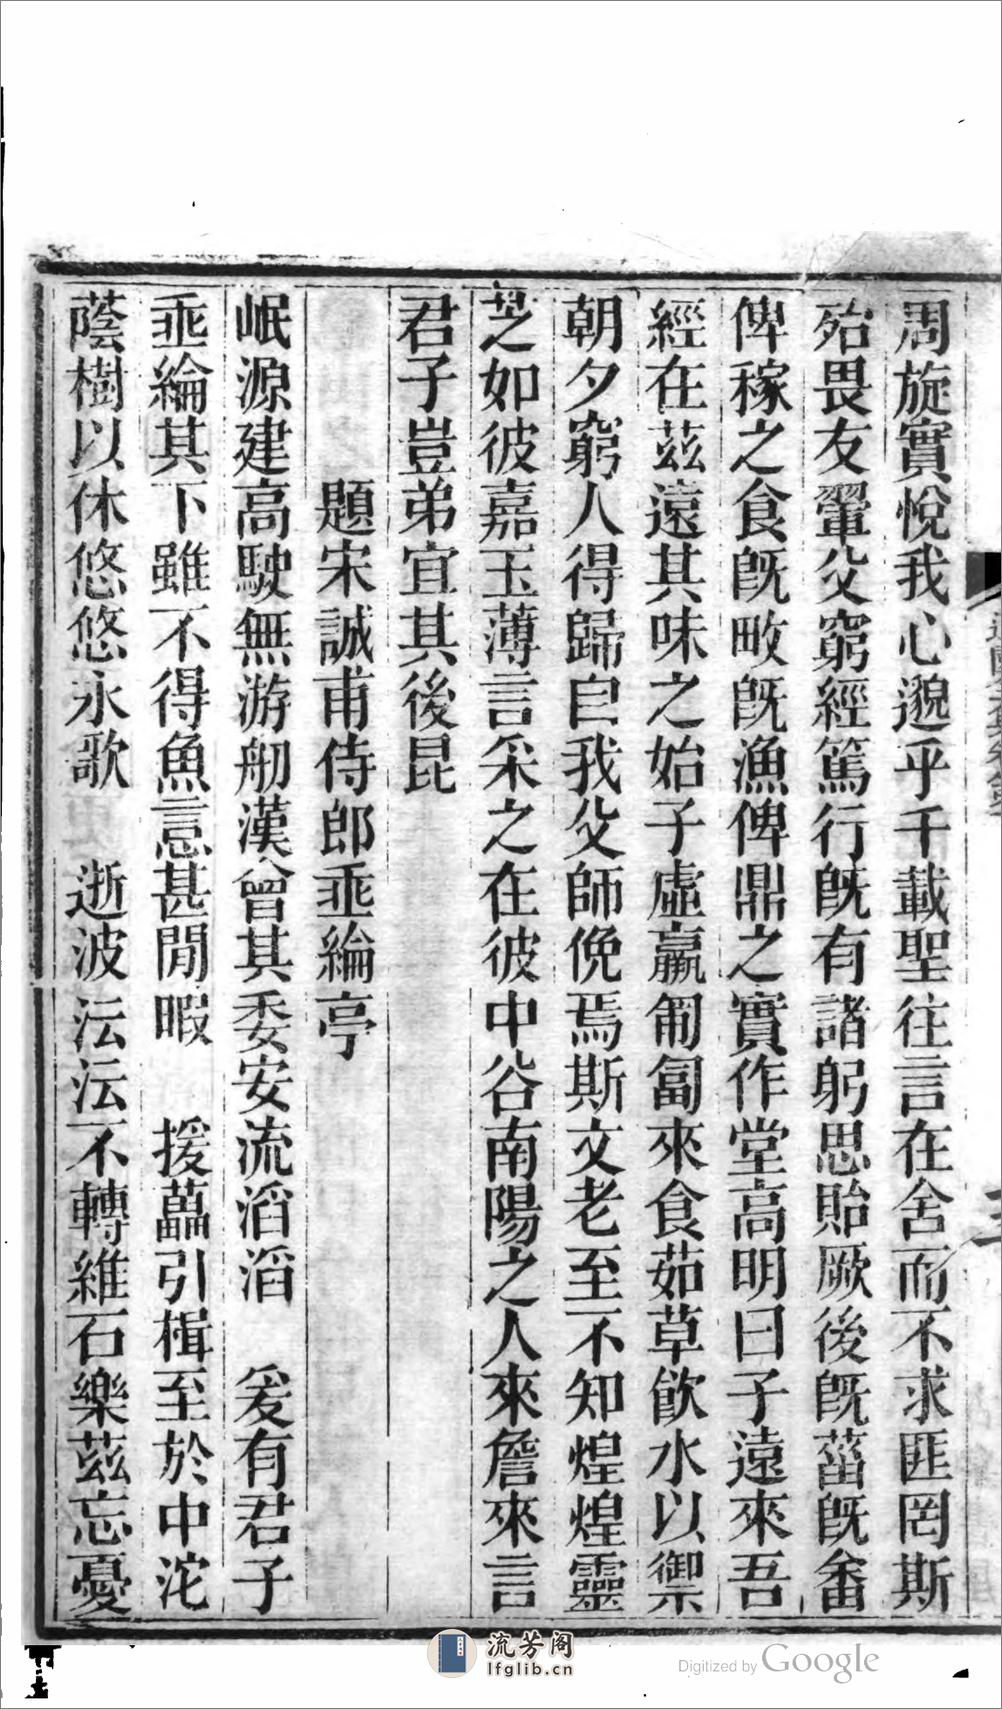 周旋實悅我心邈乎千載聖往言在舍而不求匪罔斯
殆畏友翬父窮經篤行旣有諸躬思貽厥後旣菑旣畬
俾稼之食旣畋旣漁俾鼎之實作堂高明曰子遠來吾
經在茲遠其味之始子虛羸匍匐來食茹草飲水以禦
朝夕窮人得歸自我父師俛焉斯文老至不知煌煌靈
芝如彼嘉玉薄言采之在彼中谷南陽之人來詹來言
君子豈弟宜其後昆
題宋誠甫侍郎垂綸亭
岷源建高駛無游舠漢曾其委安流滔滔　爰有君子
垂綸其下雖不得魚意甚閒暇　援藟引楫至於中沱
蔭樹以休悠悠永歌　逝波沄沄不轉維石樂茲忘憂
流芳阁
lfglib.cn
Digitized by Google